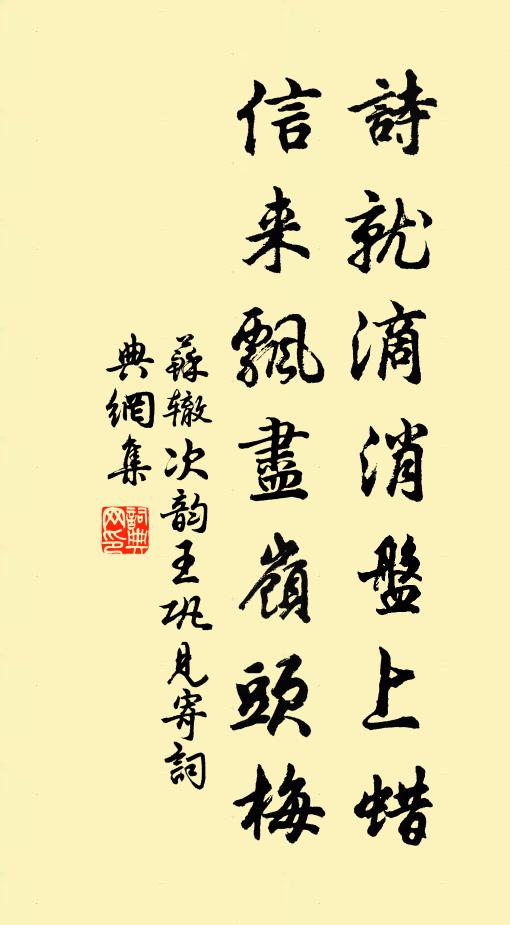 詩就滴消盤上蜡
信来飄盡嶺頭梅
蘇辙次韵王巩見寄詞
典網集
詞典
网印